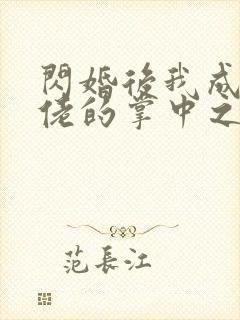 閃婚後我成
佬的掌中之
范長江